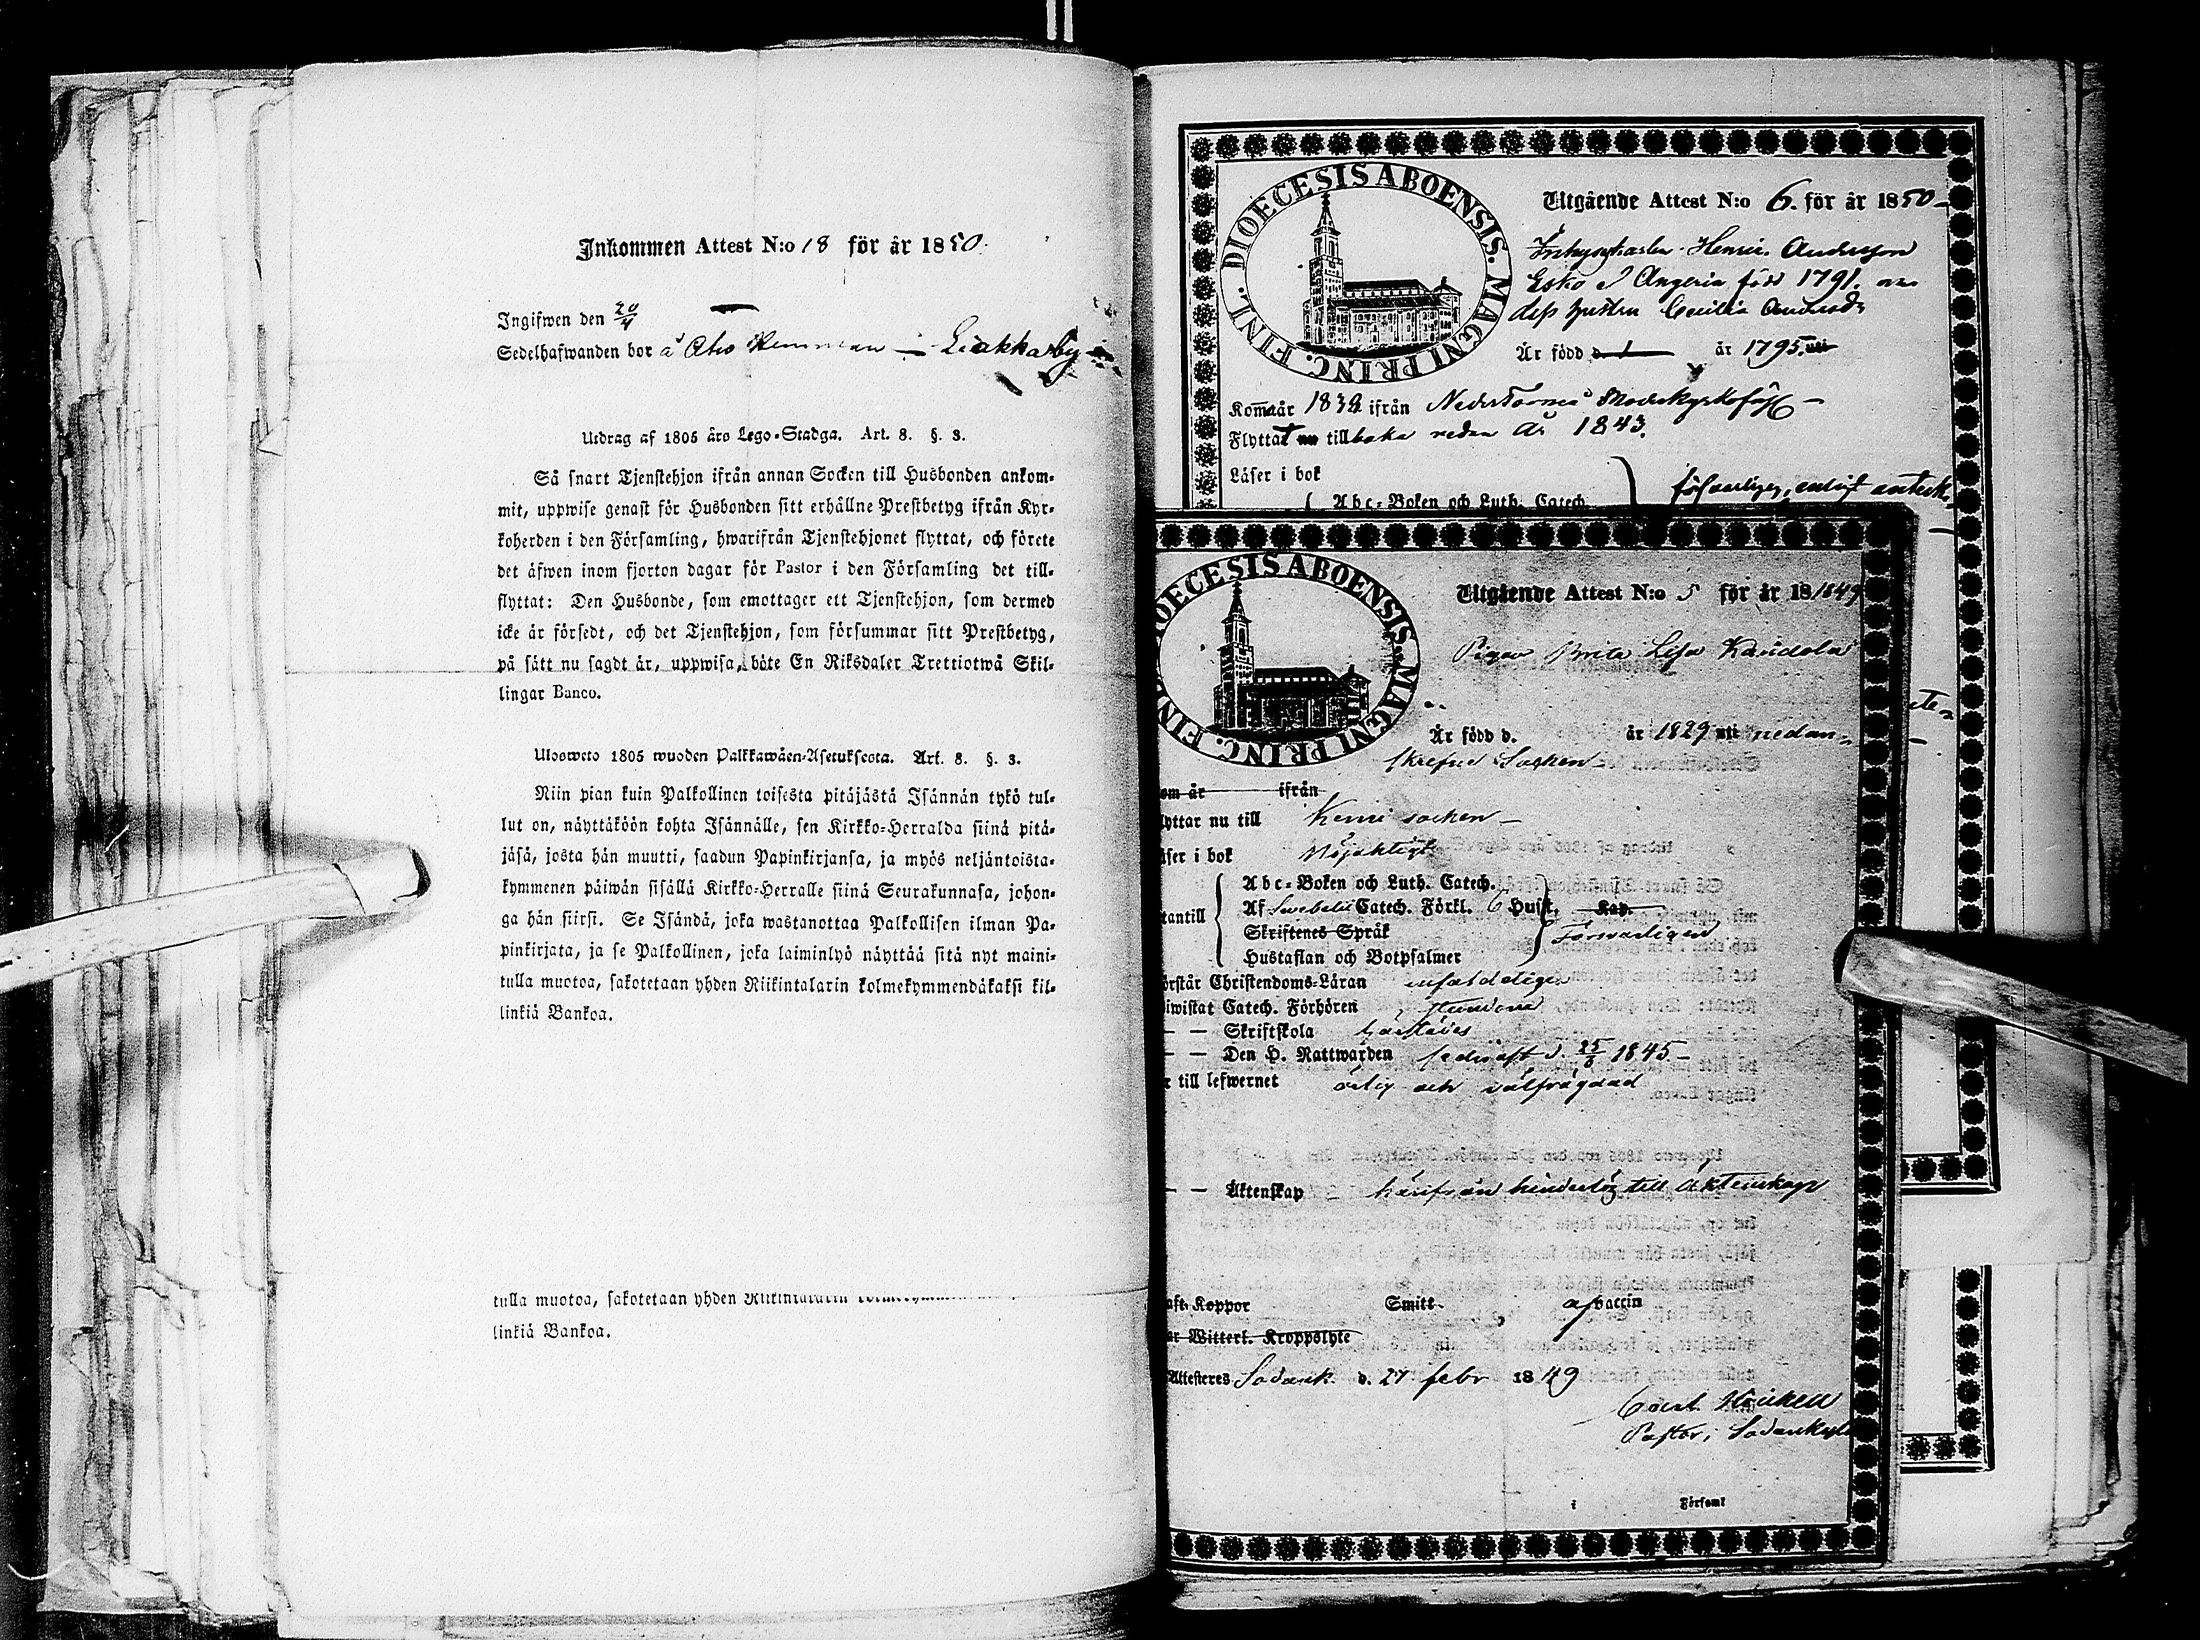 Inkommen Attest N:o 18 för år 1850.
Ingifwen den 20/4
Sedelhafwanden bor å Aho Hemman i Liakka by
Utdrag af 1805 års Lego-Stadga. Art. 8. §. 3.
Så snart Tjenstehjon ifrån annan Socken till Husbonden ankom-
mit, uppwise genast för Husbonden sitt erhållne Prestbetyg ifrån Kyr-
koherden i den Församling, hwarifrån Tjenstehjonet flyttat, och förete
det äfwen inom fjorton dagar för Pastor i den Församling det till-
flyttat: Den Husbonde, som emottager ett Tjenstehjon, som dermed
icke är försedt, och det Tjenstehjon, som försummar sitt Prestbetyg,
på sätt nu sagdt är, uppwisa, böte En Riksdaler Trettiotwå Skil-
lingar Banco.
Ulosweto 1805 wuoden Palkkawäen-Asetuksesta. Art. 8. §. 3.
Niin pian kuin Palkollinen toisesta pitäjästä Isännän tykö tul-
lut on, näyttäköön kohta Isännälle, sen Kirkko-Herralda siinä pitä-
jäsä, josta hän muutti, saadun Papinkirjansa, ja myös neljäntoista-
kymmenen päiwän sisällä Kirkko-Herralle siinä Seurakunnasa, johon-
ga hän siirsi. Se Isändä, joka wastanottaa Palkollisen ilman Pa-
pinkirjata, ja se Palkollinen, joka laiminlyö näyttää sitä nyt maini-
tulla muotoa, sakotetaan yhden Riikintalarin kolmekymmendäkaksi kil-
linkiä Bankoa.
tulla muotoa, sakotetaan yhden Riikintalarin
linkiä Bankoa.
DIOECESIS ABOENSIS. MAGNI PRINC. FINL.
Utgående Attest N:o 6. för år 1850
Henric Andersson
Esko Angeria född 1791. och
dess hustru Cecilia Andersdr
Är född d. år 1795.
Kom år 1832 ifrån Neder Torneå Moderkyrkoförs
Flyttat nu tillbaka redan År 1843.
Läser i bok
Abc-Boken och Luth. Catech.
försvarligen, enligt anteck-
OECESIS ABOENSIS. MAGNI PRINC. FIN
Utgående Attest N:o 5 för år 181849
Pigan Brita Lisa Karidola
Är född d. år 1829 uti nedan-
skrefne Socken
om år ifrån
lyttar nu till Kemi socken
äser i bok Nöjaktigt
tantill
Abc-Boken och Luth. Catech.
Af Swebelii Catech. Förkl. 6 Hust. Kap.
Skriftenes Språk
Hustaflan och Botpsalmer
Försvarligen
örstår Christendoms-Läran enfaldeligen
iwistat Catech. Förhören stundom
— — Skriftskola härstädes
— — Den H. Nattwarden sednast d. 25/3 1845
r till lefwernet ärlig och välfrägdad
— — Äktenskap härifrån hinderlös till Äktenskap
aft Koppor Smitt. af vaccin
ar Witterl. Kroppslyte
Attesteres Sodank. d. 27 febr 1849
Pastor i Sodankylä
i Församl